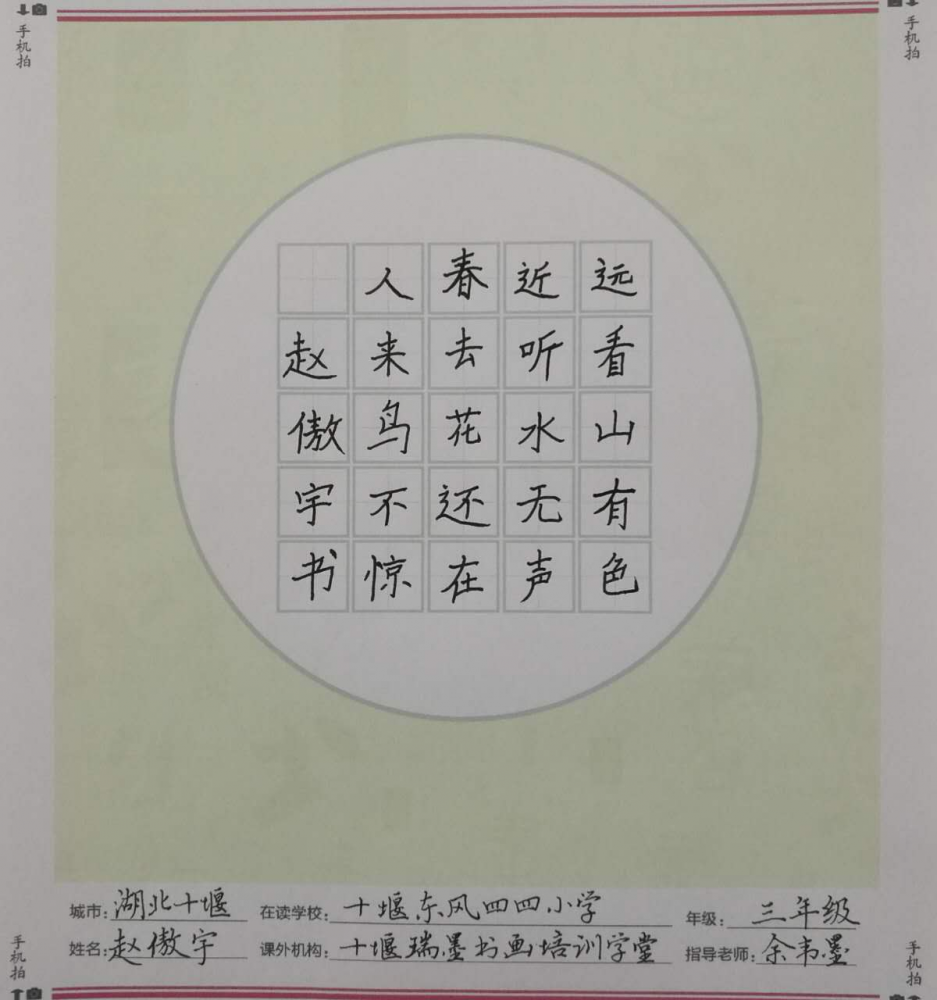 手机拍
手机拍
远看山有色
近听水无声
春去花还在
人来鸟不惊
赵傲宇书
城市：湖北十堰
在读学校：十堰东风四四小学
年级：三年级
姓名：赵傲宇
课外机构：十堰瑞墨书画培训学堂
指导老师：余韦墨
手机拍
手机拍